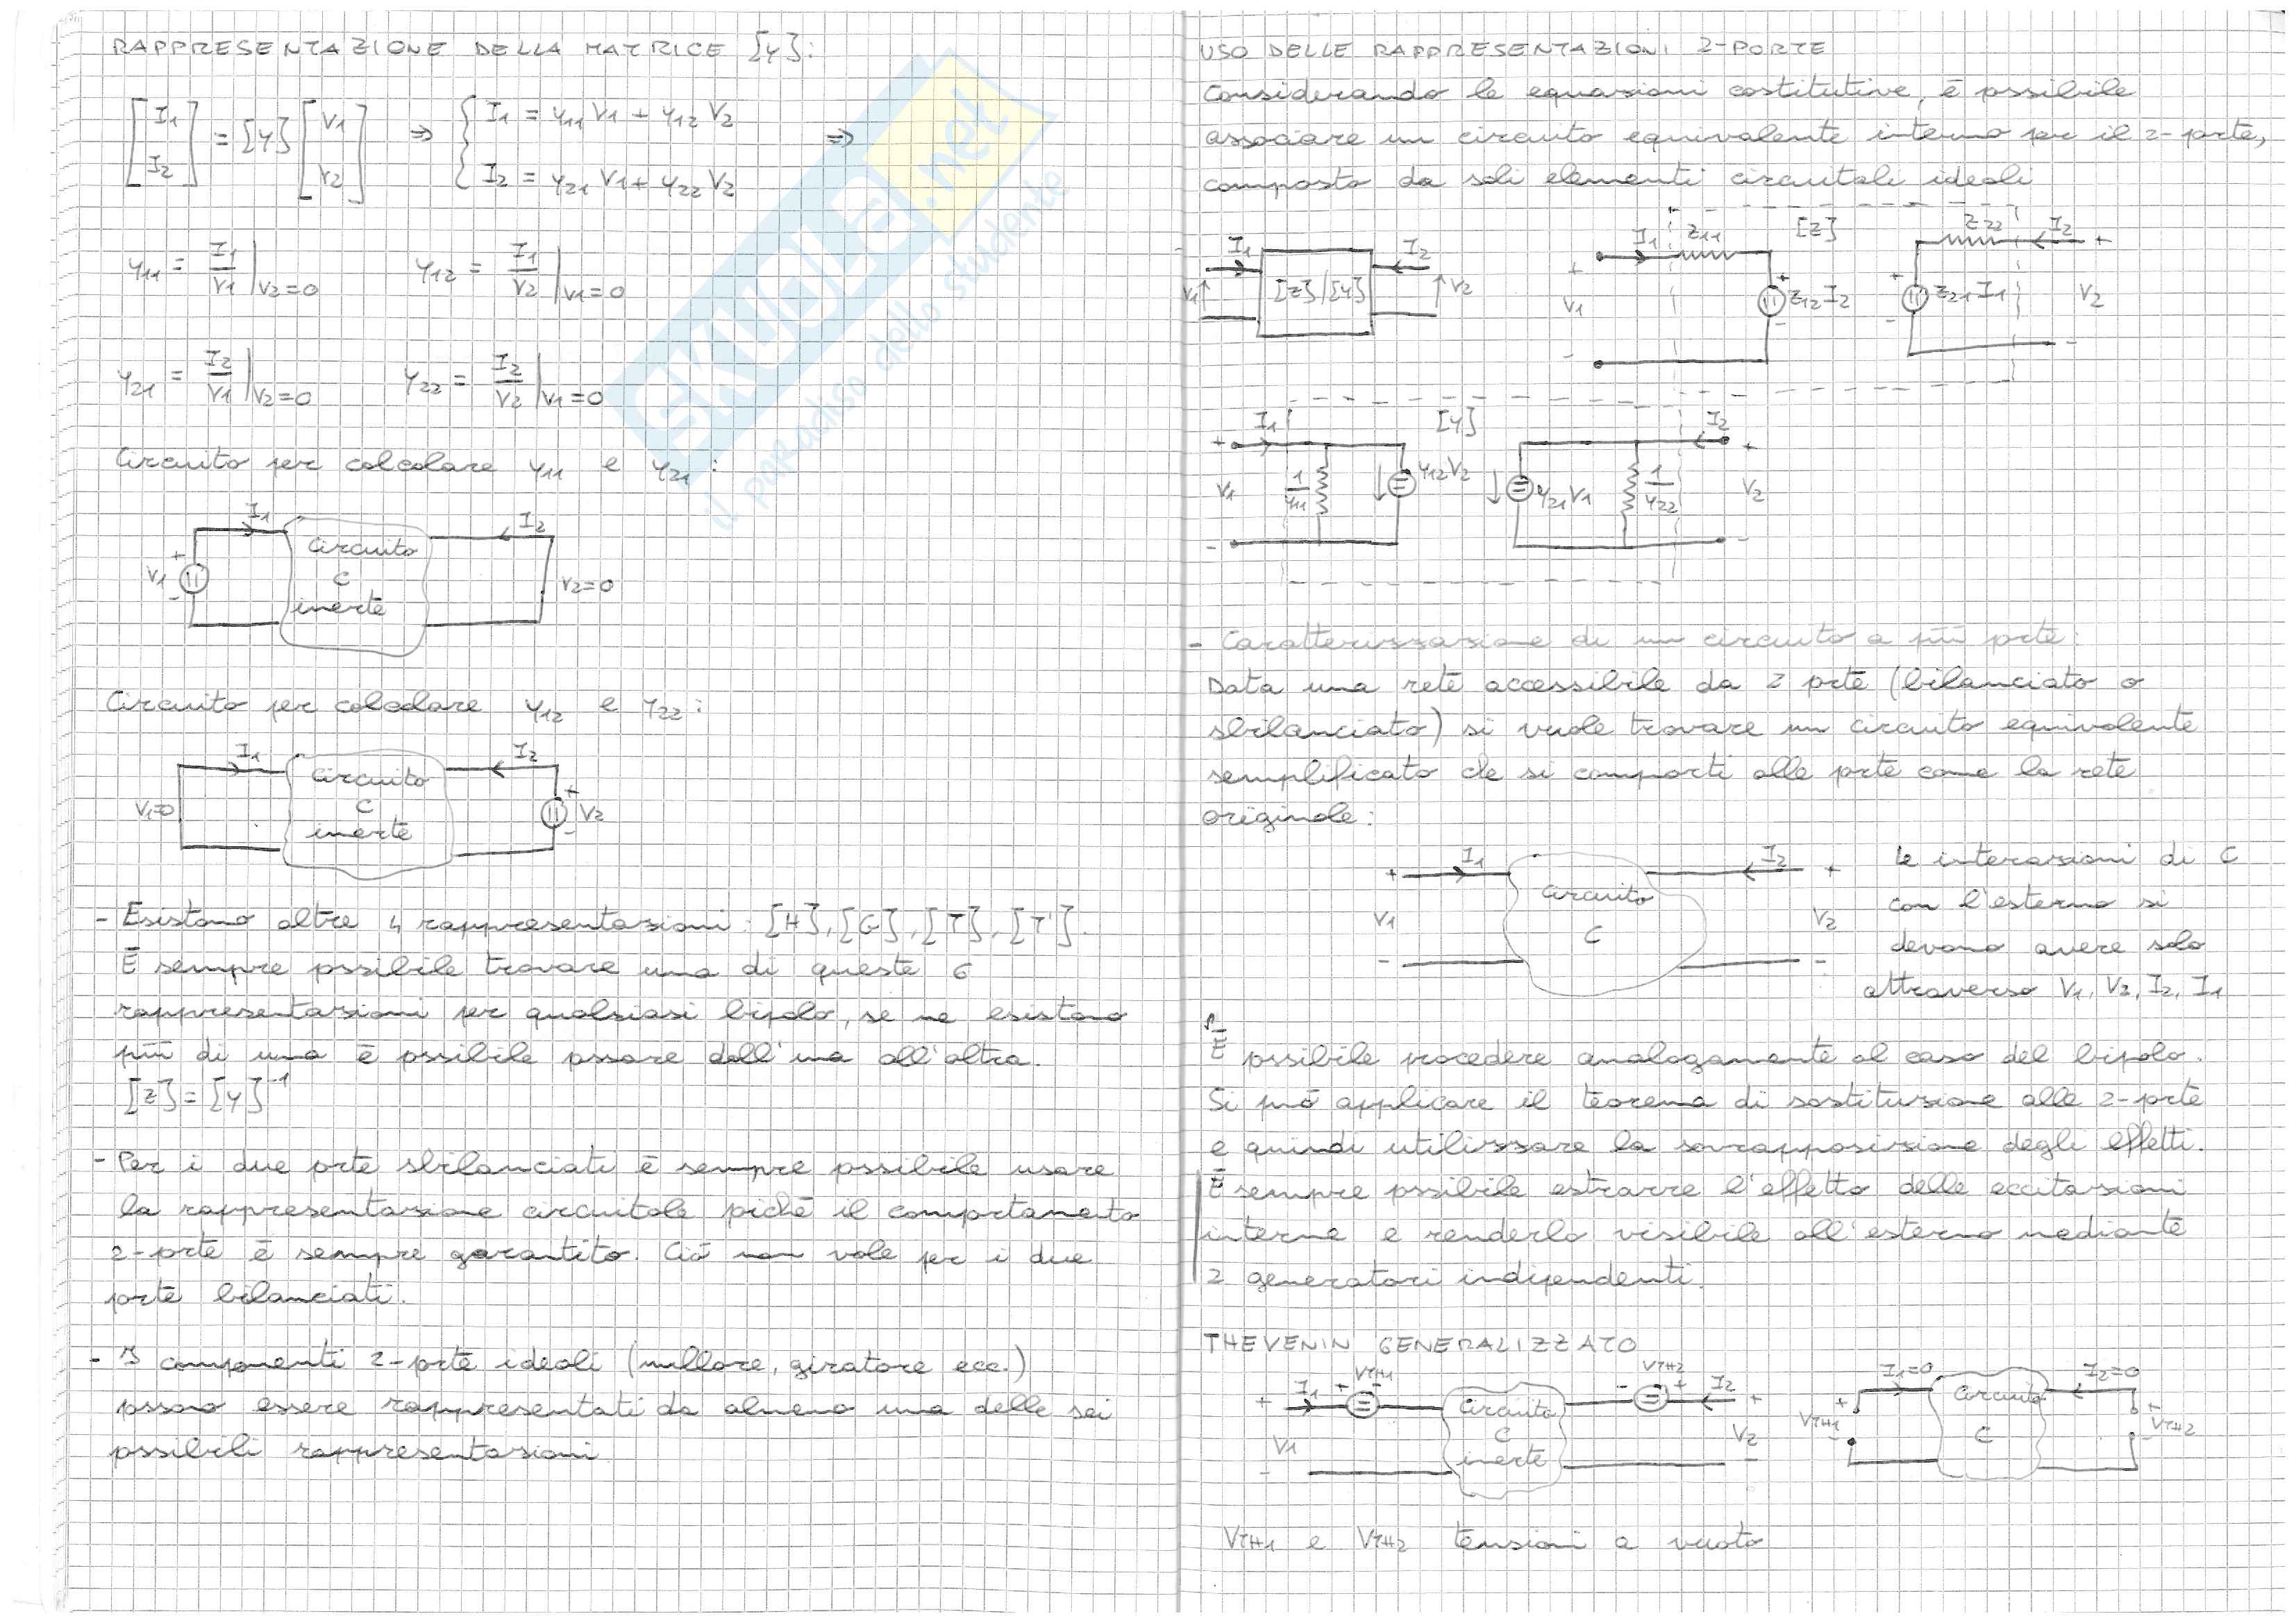 RAPPRESENTAZIONE DELLA MATRICE [Y]:
[I1 I2] = [Y] [V1 V2] ⇒ { I1 = y11 V1 + y12 V2 ⇒
I2 = y21 V1 + y22 V2
y11 = I1/V1 |V2=0 y12 = I1/V2 |V1=0
y21 = I2/V1 |V2=0 y22 = I2/V2 |V1=0
Circuito per calcolare y11 e y21:
I1 I2
V1 + - Circuito C inerte V2=0
Circuito per calcolare y12 e y22:
I1 I2
V1=0 Circuito C inerte + - V2
- Esistono altre 4 rappresentazioni: [H], [G], [T], [T'].
È sempre possibile trovare una di queste 6
rappresentazioni per qualsiasi bipolo, se ne esistono
più di una è possibile passare dall'una all'altra.
[Z] = [Y]-1
- Per i due porte sbilanciati è sempre possibile usare
la rappresentazione circuitale poiché il comportamento
2-porte è sempre garantito. Ciò non vale per i due
porte bilanciati.
- I componenti 2-porte ideali (nullore, giratore ecc.)
possono essere rappresentati da almeno una delle sei
possibili rappresentazioni
SKUOLA.net
il paradiso dello studente
USO DELLE RAPPRESENTAZIONI 2-PORTE
Considerando le equazioni costitutive, è possibile
associare un circuito equivalente interno per il 2-porte,
composto da soli elementi circuitali ideali
I1 I2 V1 [Z]/[Y] V2
I1 Z11 [Z] Z22 I2
+ V1 - + Z12 I2 - + Z21 I1 - + V2 -
I1 [Y] I2
+ V1 - 1/y11 y12 V2 y21 V1 1/y22 + V2 -
- Caratterizzazione di un circuito a più porte:
Data una rete accessibile da 2 porte (bilanciato o
sbilanciato) si vuole trovare un circuito equivalente
semplificato che si comporti alle porte come la rete
originale:
I1 I2
+ V1 - Circuito C + V2 -
Le interazioni di C
con l'esterno si
devono avere solo
attraverso V1, V2, I2, I1
È possibile procedere analogamente al caso del bipolo.
Si può applicare il teorema di sostituzione alle 2-porte
e quindi utilizzare la sovrapposizione degli effetti.
È sempre possibile estrarre l'effetto delle eccitazioni
interne e renderlo visibile all'esterno mediante
2 generatori indipendenti.
THEVENIN GENERALIZZATO
+ V1 - I1 + VTH1 - Circuito C inerte - VTH2 + I2 + V2 -
I1=0 I2=0
+ VTH1 - Circuito C + VTH2 -
VTH1 e VTH2 tensioni a vuoto